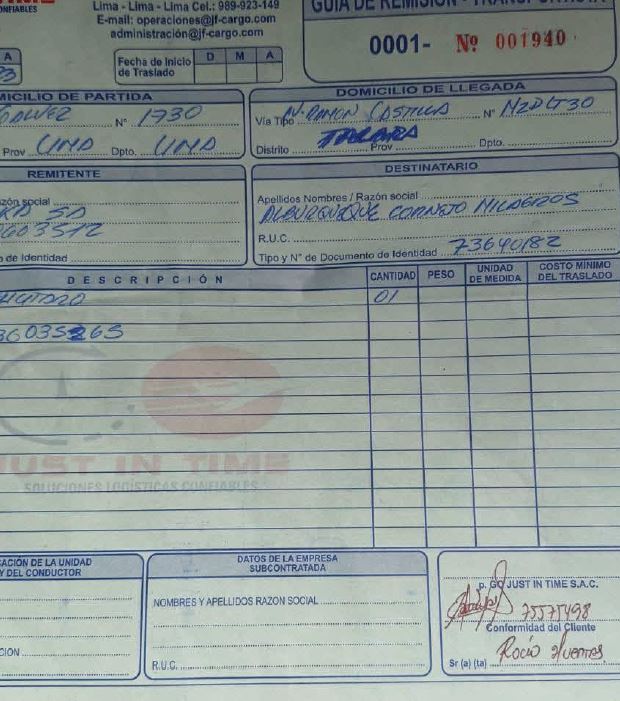 ONFIABLES
Lima - Lima - Lima Cel.: 989-923-149
E-mail: operaciones@jf-cargo.com
administración@jf-cargo.com
GUIA DE REMISIÓN - TRANSPORTISTA
0001- Nº 001940
A
Fecha de Inicio de Traslado D M A
MICILIO DE PARTIDA
Nº 1730
Prov LIMA Dpto. LIMA
DOMICILIO DE LLEGADA
Vía Tipo AV. RAMON CASTILLA Nº MZD LT30
Distrito Prov Dpto.
REMITENTE
zón social
SA
o de Identidad
DESTINATARIO
Apellidos Nombres / Razón social
ALBURQUEQUE CORNEJO MILAGROS
R.U.C.
Tipo y Nº de Documento de Identidad 73640182
DESCRIPCIÓN CANTIDAD PESO UNIDAD DE MEDIDA COSTO MÍNIMO DEL TRASLADO
01
JUST IN TIME
SOLUCIONES LOGÍSTICAS CONFIABLES
CACIÓN DE LA UNIDAD
Y DEL CONDUCTOR
CION
DATOS DE LA EMPRESA
SUBCONTRATADA
NOMBRES Y APELLIDOS RAZON SOCIAL
R.U.C.
p. GO JUST IN TIME S.A.C.
75571498
Conformidad del Cliente
Sr (a) (ta) Rocío